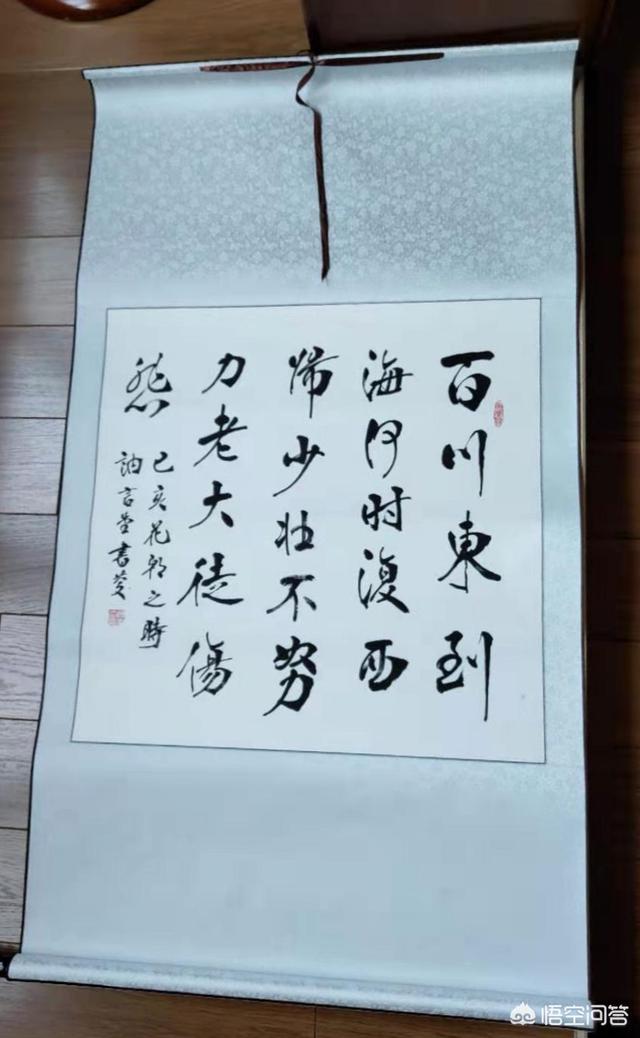 百川東到
海何时復西
帰少壮不努
力老大徒傷
悲
己亥花朝之時
訥言堂書
悟空问答